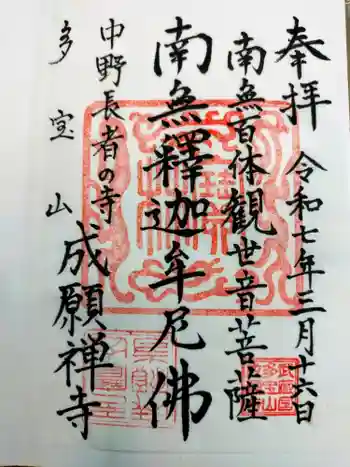 奉拝 令和七年三月十六日
南無百体観世音菩薩
南無釋迦牟尼佛
中野長者の寺
多宝山 成願禅寺